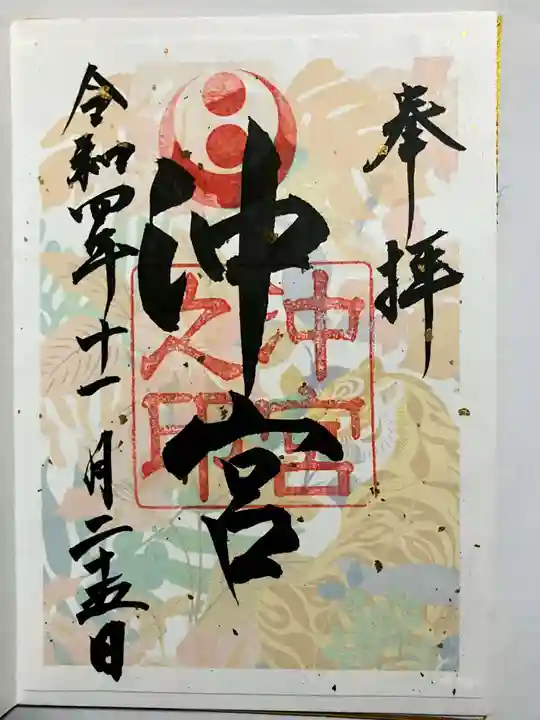 奉拝
沖宮
沖宮
之印
令和四年十一月二十五日